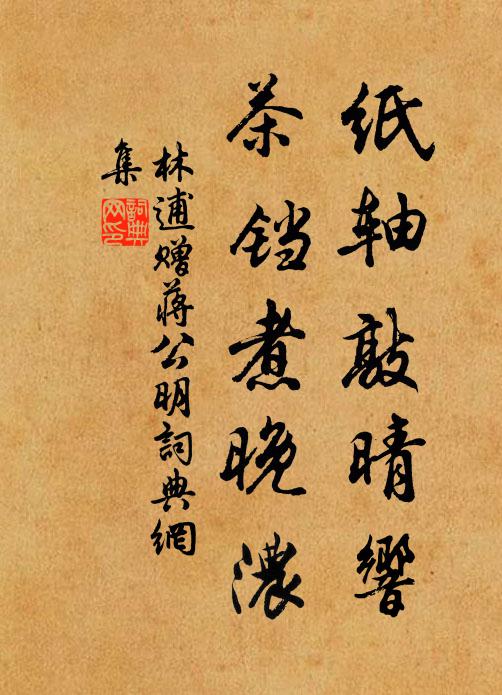 纸轴敲晴響
茶铛煮晚濃
林逋赠蒋公明詞典網
集
詞典
网印